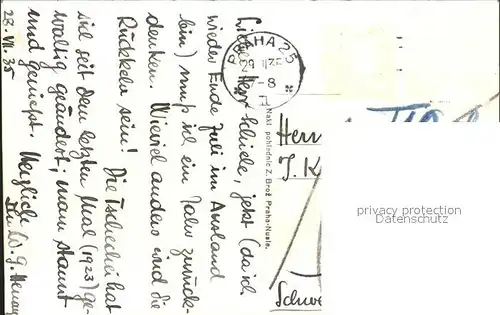 Lieber Herr Schiele, jetzt (da ich
wieder Ende Juli im Ausland
bin) muß ich ein Jahr zurück-
denken. Wieviel anders wird die
Rückkehr sein! Die Tschechei hat
viel seit dem letzten Mal (1923) ge-
waltig geändert; man staunt
und genießt. Herzlichst
28.VII.35
PRAHA 25
-8
Nakl. pohlednic Z. Brož Praha-Nusle.
Herrn
J. K
Schwe
privacy protection
Datenschutz